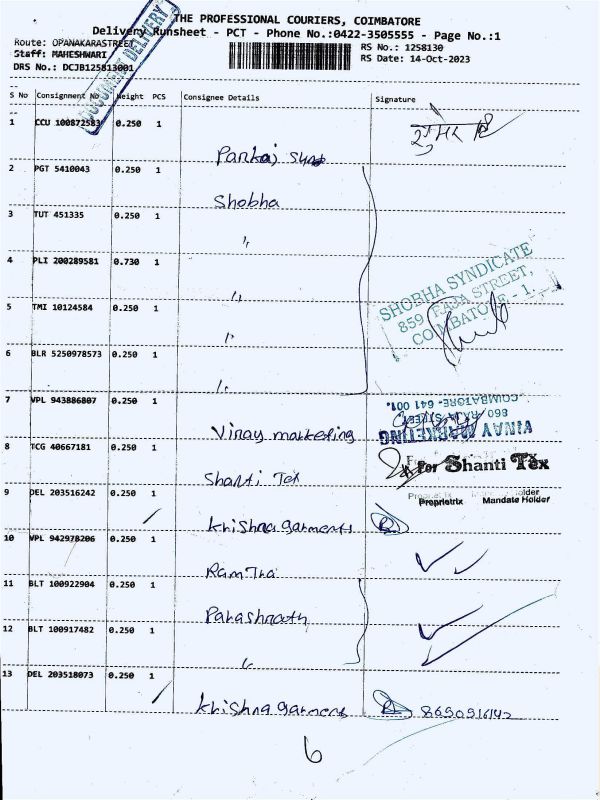 THE PROFESSIONAL COURIERS, COIMBATORE
Delivery Runsheet - PCT - Phone No.:0422-3505555 - Page No.:1
Route: OPANAKARASTREET
RS No.: 1258130
Staff: MAHESHWARI
RS Date: 14-Oct-2023
DRS No.: DCJB125813001
DOCUMENT DELIVERY
S No Consignment No Weight PCS Consignee Details Signature
1 CCU 100872583 0.250 1
Pankaj
2 PGT 5410043 0.250 1
Shobha
3 TUT 451335 0.250 1
"
4 PLI 200289581 0.730 1
"
SHOBHA SYNDICATE
859 RAJA STREET,
COIMBATORE - 1.
5 TMI 10124584 0.250 1
"
6 BLR 5250978573 0.250 1
"
7 VPL 943886807 0.250 1
Vinay marketing
VINAY MARKETING
860 RAJA STREET
COIMBATORE- 641 001.
8 TCG 40667181 0.250 1
Shanti Tex
For Shanti Tex
Proprietrix Mandate Holder
9 DEL 203516242 0.250 1
Krishna garments
10 VPL 942978206 0.250 1
11 BLT 100922904 0.250 1
12 BLT 100917482 0.250 1
"
13 DEL 203518073 0.250 1
Krishna garmens
6